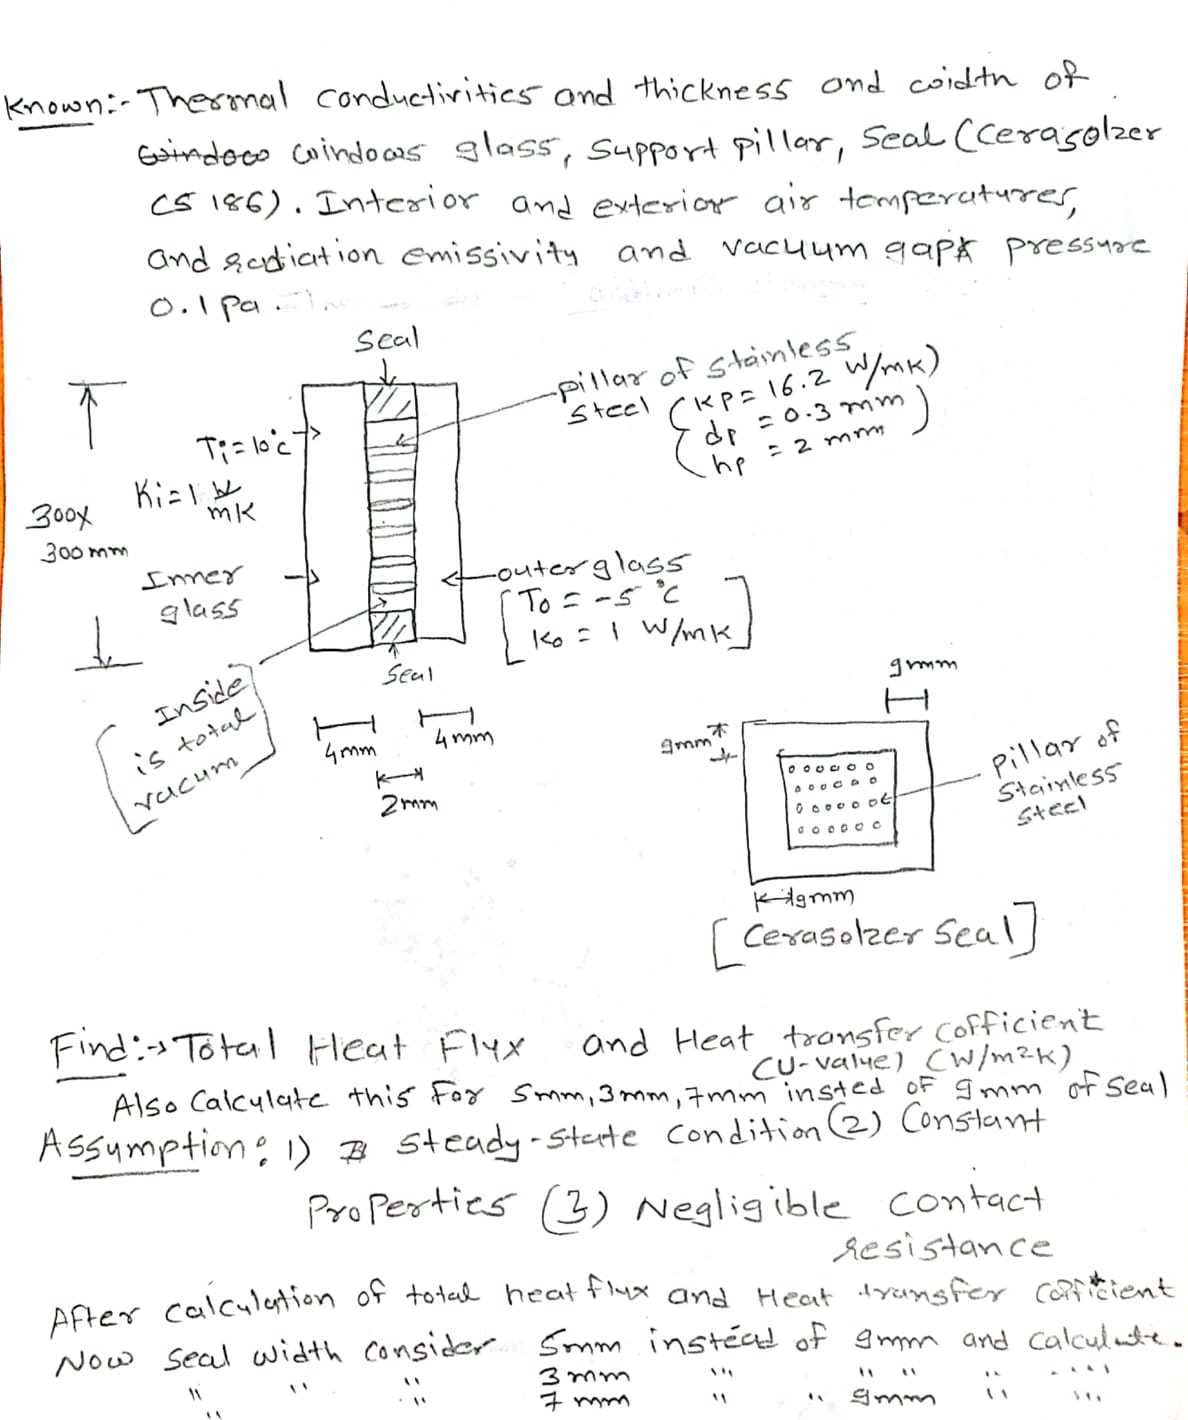 Known:- Thermal conductivities and thickness and width of
window windows glass, support pillar, seal (Cerasolzer
CS 186). Interior and exterior air temperatures,
and radiation emissivity and vacuum gap pressure
0.1 pa.
seal
pillar of stainless
steel (kp = 16.2 W/mK)
dp = 0.3 mm
hp = 2 mm
Ti = 10°C
Ki = 1 W/mK
300x
300 mm
Inner
glass
outer glass
[To = -5 °C
Ko = 1 W/mK]
Seal
[Inside
is total
vacum]
4mm
4mm
2mm
9mm
9mm
pillar of
Stainless
Steel
9mm
[Cerasolzer Seal]
Find:→ Total Heat Flux and Heat transfer cofficient
(U-value) (W/m2K)
Also Calculate this for 5mm, 3mm, 7mm insted of 9mm of seal
Assumption: 1) Steady-state condition (2) Constant
Properties (3) Negligible contact
resistance
After calculation of total heat flux and Heat transfer cofficient
Now seal width consider 5mm instead of 9mm and calculate.
" " " 3 mm " " " " ....
" " 7 mm " " 9mm " "